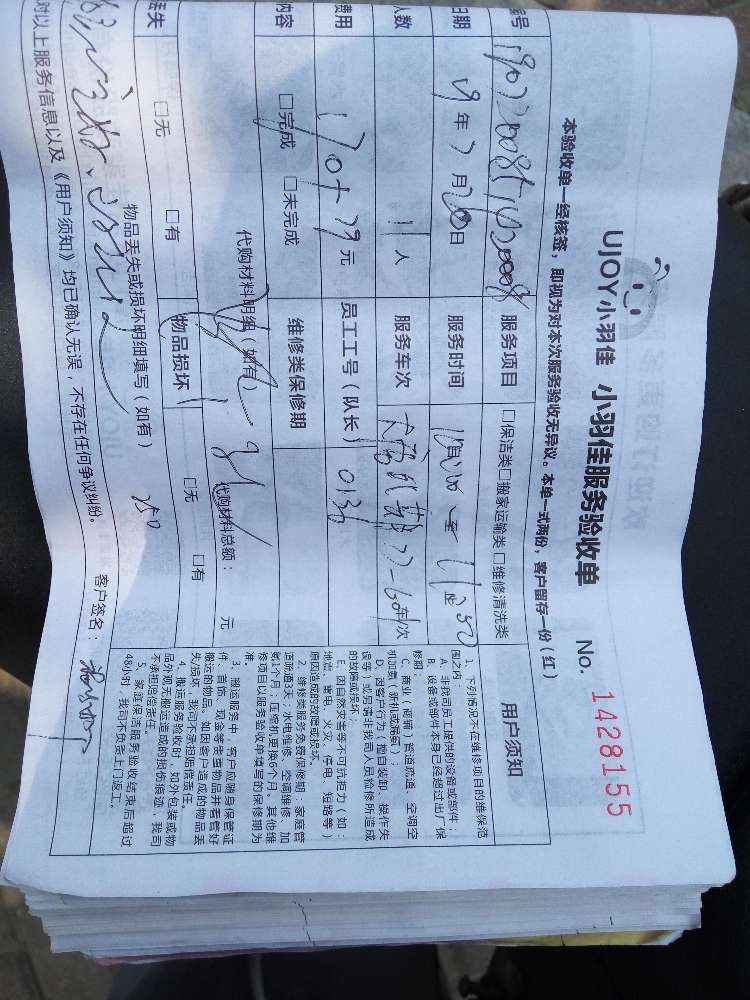 UJOY小羽佳 小羽佳服务验收单 No. 1428155
本验收单一经核签，即视为对本次服务验收无异议。本单一式两份，客户留存一份（红）
编号 服务项目 □保洁类□搬家运输类□维修清洗类
日期 19年7月20日 服务时间 至
人数 人 服务车次 车/次
费用 170+79元 员工工号（队长） 0136
内容 □完成 □未完成 维修类保修期
代购材料明细（如有） 代购材料总额： 元
丢失 □无 □有 物品损坏 □无 □有
物品丢失或损坏明细填写（如有）
250
对以上服务信息以及《用户须知》均已确认无误，不存在任何争议纠纷。 客户签名：
用户须知
1、下列情况不在维修项目的维保范
围之内：
A、非我司员工提供的设备或部件；
B、设备或部件本身已经超过出厂保
修期；
C、商业（商铺）管道疏通、空调空
机加氨（新机或漏氨）；
D、因客户行为（擅自装卸、操作失
误等）或另请非我司人员检修所造成
的故障或损坏；
E、因自然灾害等不可抗拒力（如：
地震、雷电、火灾、停电、短路等）
原因造成的故障或损坏。
2、维修类服务免费保修期：家庭管
道疏通3天；水电维修、空调维修、加
氨1个月；压缩机更换6个月，其他维
修项目以服务验收单填写的保修期为
准。
3、搬运服务中，客户应随身保管证
件、首饰、现金等贵重物品并看管好
搬运的物品。如因客户造成的物品丢
失/损坏，我司不承担赔偿责任。
4、搬运服务验收时，如外包装或物
品外观无搬运造成的损伤痕迹，我司
不承担赔偿责任。
5、家庭保洁服务验收结束后超过
48小时，我司不负责上门返工。